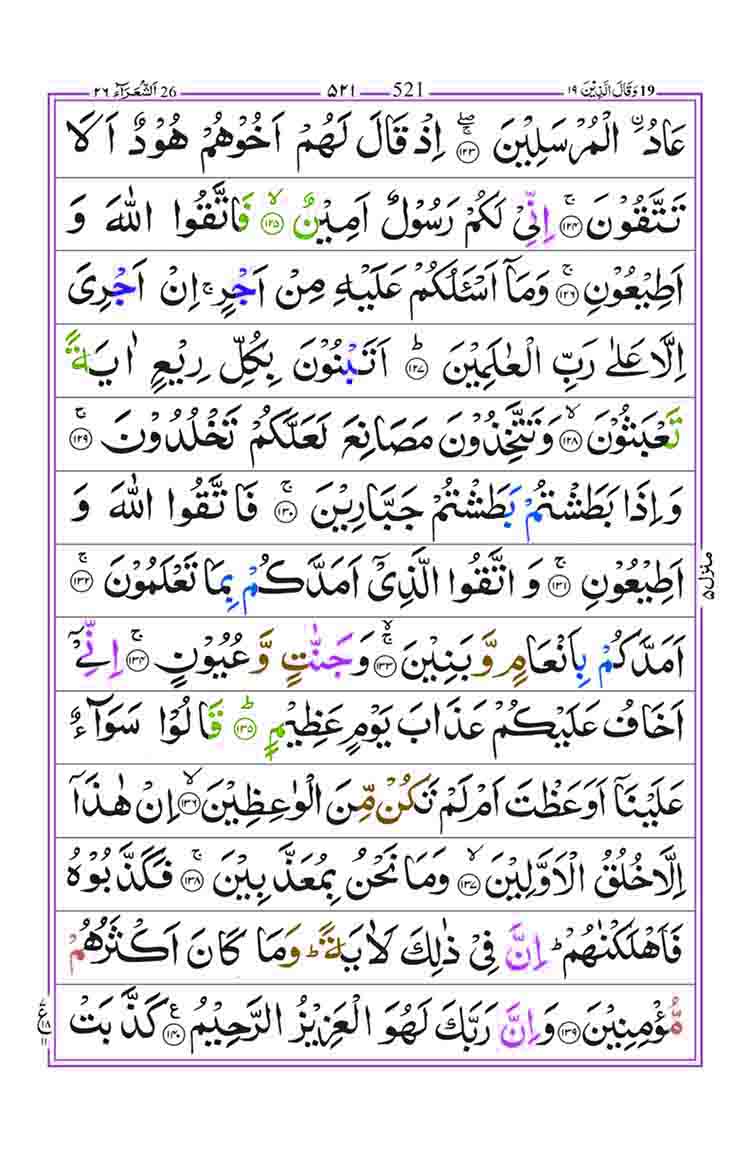 19 وَقَالَ الَّذِيْنَ ١٩ 521 ۵۲۱ 26 اَلشُّعَرَآء ٢٦
عَادُ ۨ الۡمُرۡسَلِيۡنَ ‌ۖ‌ۚ‏ ﴿۱۲۳﴾ اِذۡ قَالَ لَهُمۡ اَخُوۡهُمۡ هُوۡدٌ اَلَا
تَتَّقُوۡنَ‌ۚ‏ ﴿۱۲۴﴾ اِنِّىۡ لَـكُمۡ رَسُوۡلٌ اَمِيۡنٌۙ‏ ﴿۱۲۵﴾ فَاتَّقُوا اللّٰهَ وَ
اَطِيۡعُوۡنِ‌ۚ‏ ﴿۱۲۶﴾ وَمَاۤ اَسۡـَٔـلُكُمۡ عَلَيۡهِ مِنۡ اَجۡرٍ‌ۚ اِنۡ اَجۡرِىَ
اِلَّا عَلٰى رَبِّ الۡعٰلَمِيۡنَؕ‏ ﴿۱۲۷﴾ اَتَبۡنُوۡنَ بِكُلِّ رِيۡعٍ اٰيَةً
تَعۡبَثُوۡنَۙ‏ ﴿۱۲۸﴾ وَ تَتَّخِذُوۡنَ مَصَانِعَ لَعَلَّكُمۡ تَخۡلُدُوۡنَ‌ۚ‏ ﴿۱۲۹﴾
وَاِذَا بَطَشۡتُمۡ بَطَشۡتُمۡ جَبَّارِيۡنَ‌ۚ‏ ﴿۱۳۰﴾ فَاتَّقُوا اللّٰهَ وَ
اَطِيۡعُوۡنِ‌ۚ‏ ﴿۱۳۱﴾ وَ اتَّقُوا الَّذِىۡۤ اَمَدَّكُمۡ بِمَا تَعۡلَمُوۡنَ‌ۚ‏ ﴿۱۳۲﴾
اَمَدَّكُمۡ بِاَنۡعَامٍ وَّ بَنِيۡنَ ۚۙ‏ ﴿۱۳۳﴾ وَجَنّٰتٍ وَّ عُيُوۡنٍ‌ۚ‏ ﴿۱۳۴﴾ اِنِّىۡۤ
اَخَافُ عَلَيۡكُمۡ عَذَابَ يَوۡمٍ عَظِيۡمٍؕ‏ ﴿۱۳۵﴾ قَالُوۡا سَوَآءٌ
عَلَيۡنَاۤ اَوَعَظۡتَ اَمۡ لَمۡ تَكُنۡ مِّنَ الۡوٰعِظِيۡنَۙ‏ ﴿۱۳۶﴾ اِنۡ هٰذَاۤ
اِلَّا خُلُقُ الۡاَوَّلِيۡنَۙ‏ ﴿۱۳۷﴾ وَمَا نَحۡنُ بِمُعَذَّبِيۡنَ‌ۚ‏ ﴿۱۳۸﴾ فَكَذَّبُوۡهُ
فَاَهۡلَـكۡنٰهُمۡ‌ؕ اِنَّ فِىۡ ذٰ لِكَ لَاٰيَةً‌ ؕ وَ مَا كَانَ اَكۡثَرُهُمۡ
مُّؤۡمِنِيۡنَ‏ ﴿۱۳۹﴾ وَاِنَّ رَبَّكَ لَهُوَ الۡعَزِيۡزُ الرَّحِيۡمُ‏ ﴿۱۴۰﴾ ع كَذَّبَتۡ
منزل ۵
ع ١٨ ١١